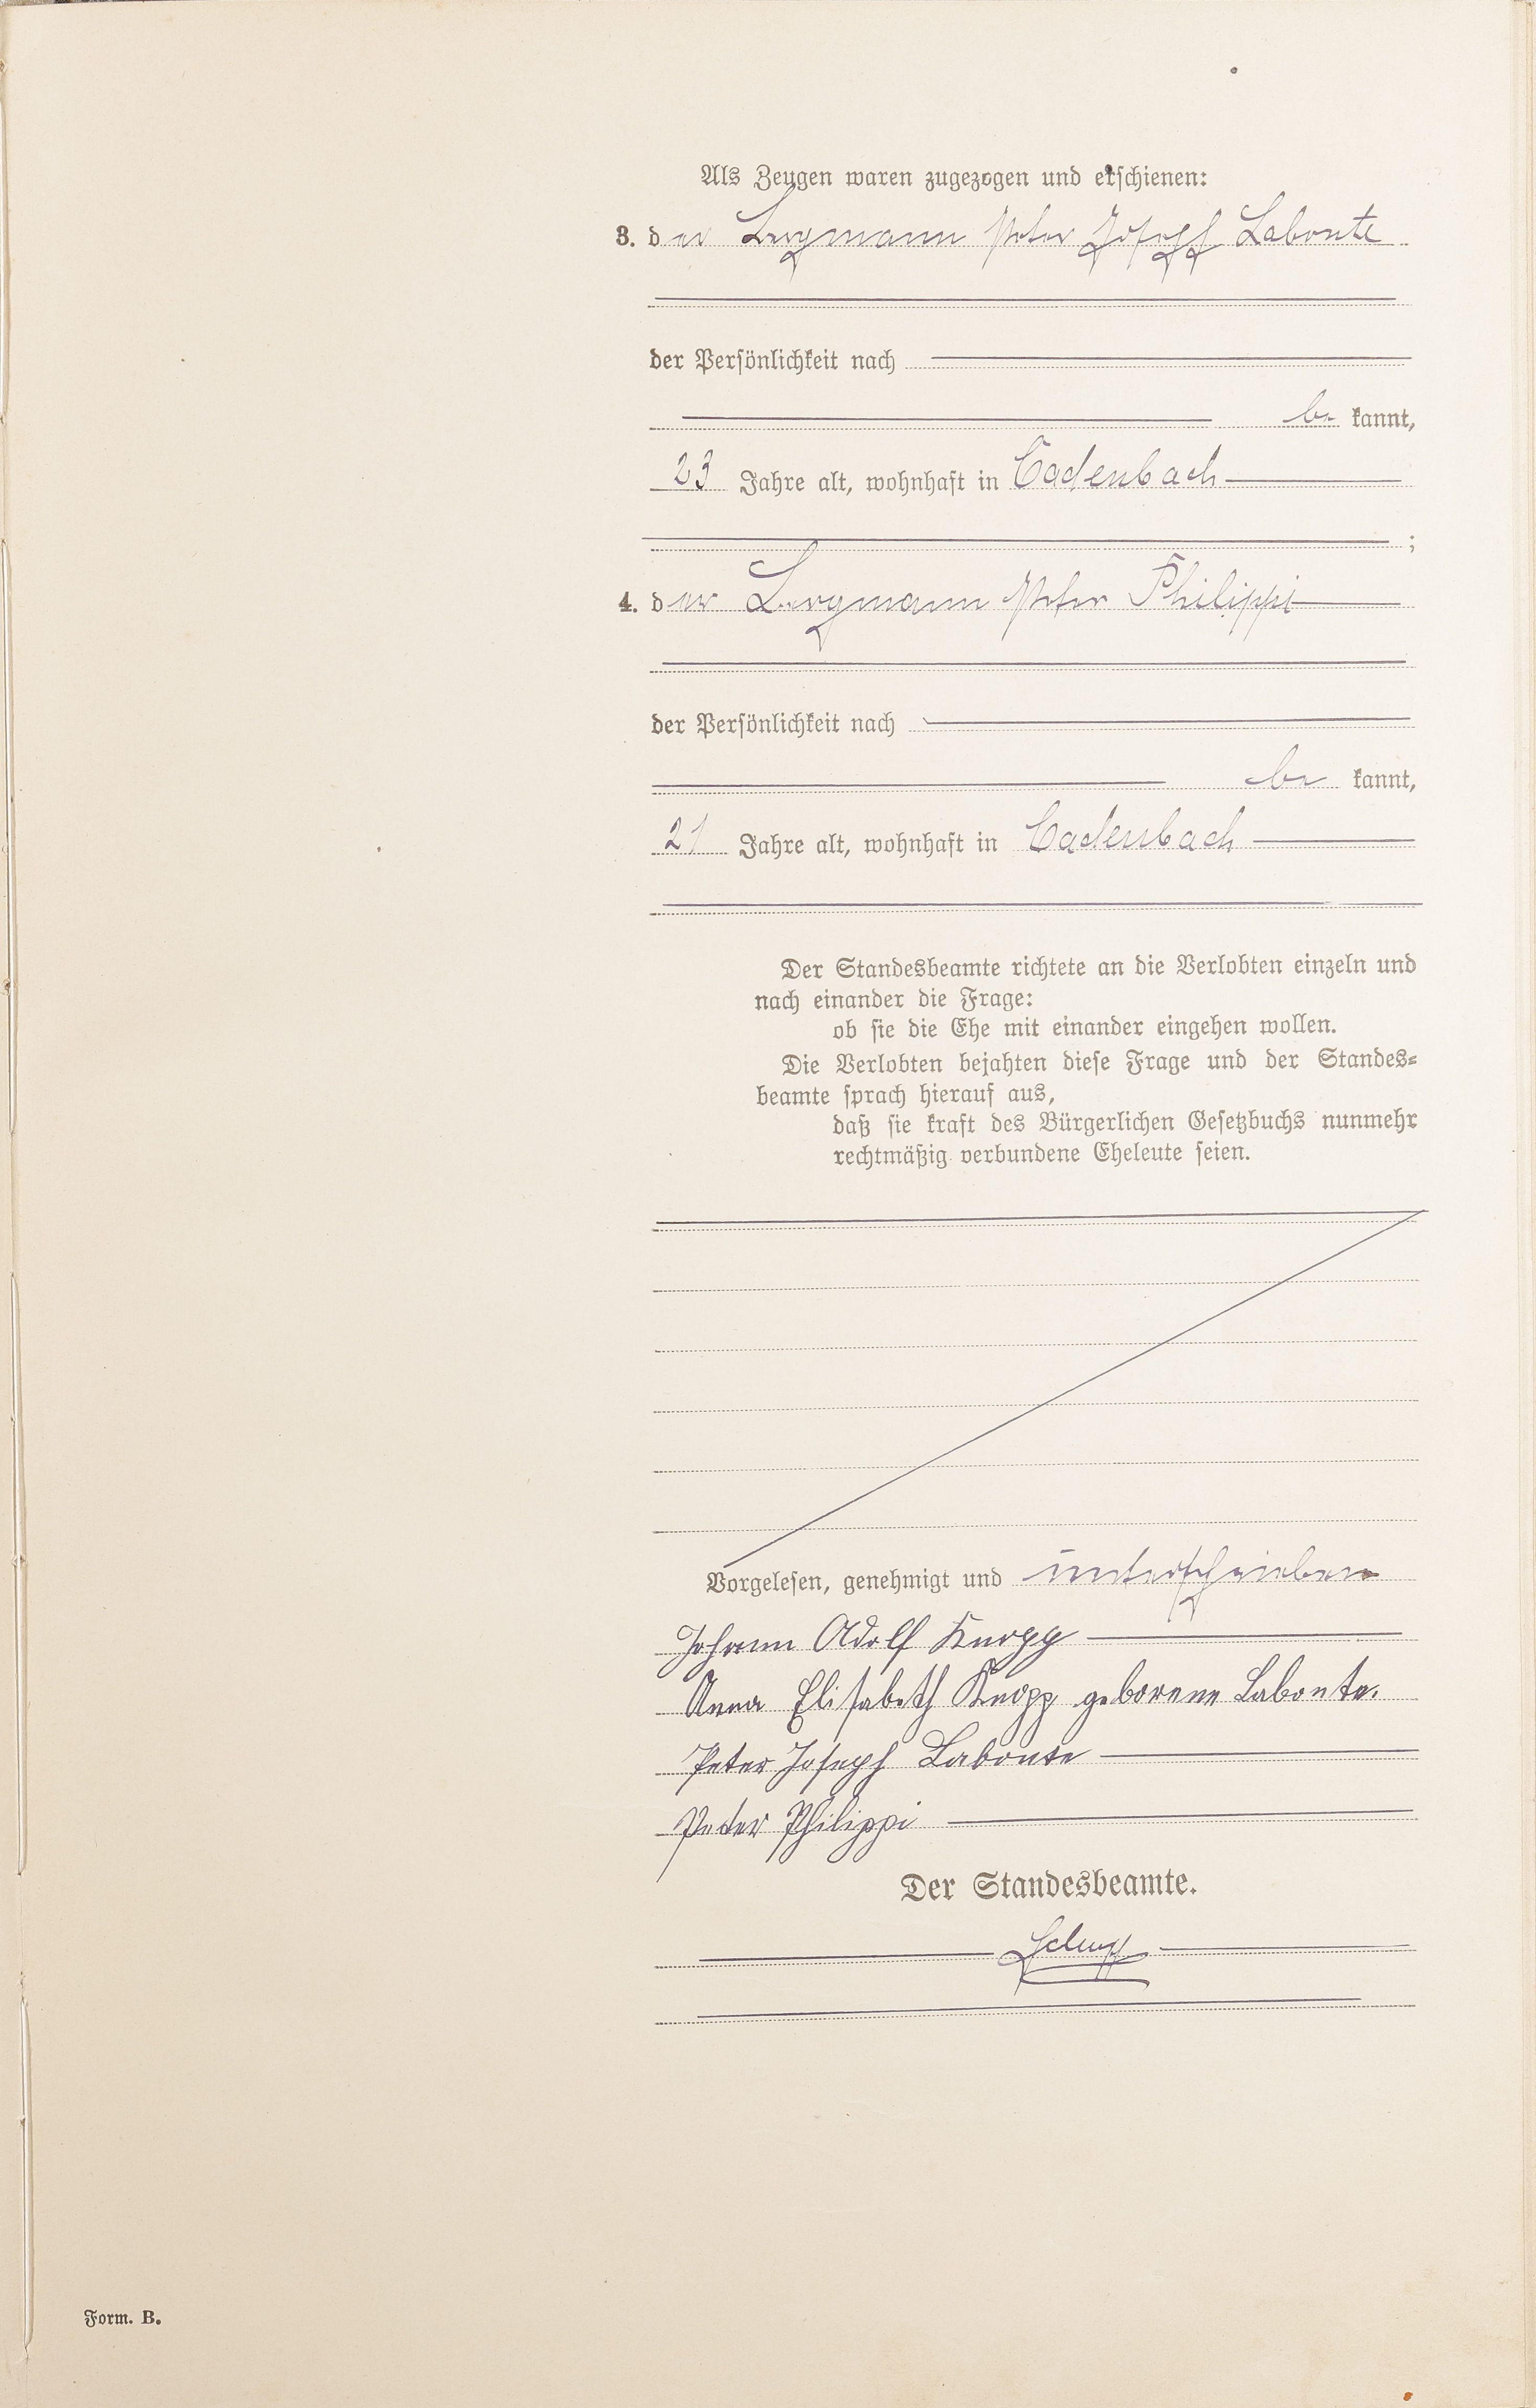 Als Zeugen waren zugezogen und erschienen:
3. der Bergmann Peter Joseph Labonte
der Persönlichkeit nach
be kannt,
23 Jahre alt, wohnhaft in Cadenbach
;
4. der Bergmann Peter Philippi
der Persönlichkeit nach
be kannt,
21 Jahre alt, wohnhaft in Cadenbach
Der Standesbeamte richtete an die Verlobten einzeln und
nach einander die Frage:
ob sie die Ehe mit einander eingehen wollen.
Die Verlobten bejahten diese Frage und der Standes=
beamte sprach hierauf aus,
daß sie kraft des Bürgerlichen Gesetzbuchs nunmehr
rechtmäßig verbundene Eheleute seien.
Vorgelesen, genehmigt und unterschrieben
Johann Adolf Knopp
Anna Elisabeth Knopp geborene Labonte.
Peter Joseph Labonte
Peter Philippi
Der Standesbeamte.
Form. B.